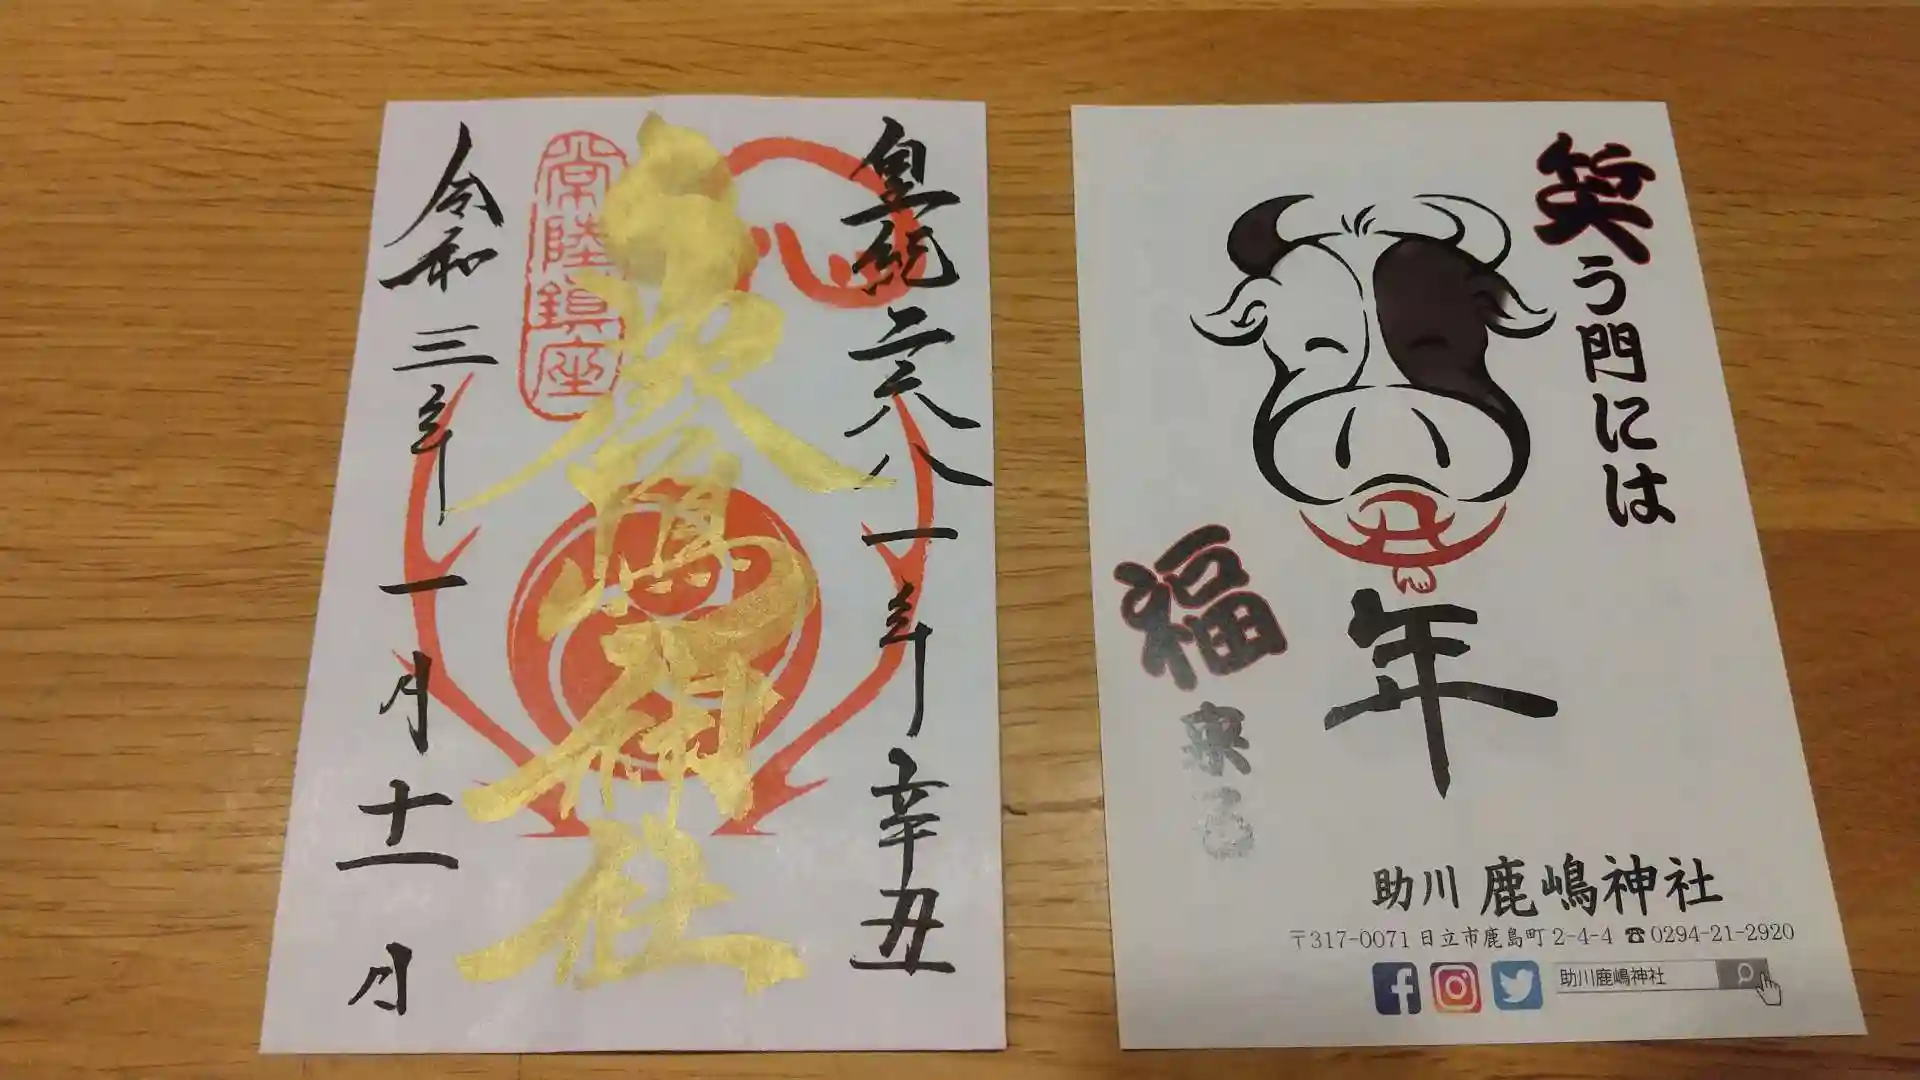 皇紀二六八一年辛丑
常陸鎮座
鹿嶋神社
令和三年一月十一日
笑う門には
福来る
丑年
助川 鹿嶋神社
〒317-0071 日立市鹿島町 2-4-4 ☎0294-21-2920
助川鹿嶋神社